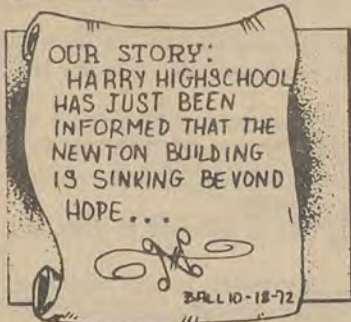 OUR STORY:
HARRY HIGHSCHOOL
HAS JUST BEEN
INFORMED THAT THE
NEWTON BUILDING
IS SINKING BEYOND
HOPE...
BALL 10-18-72